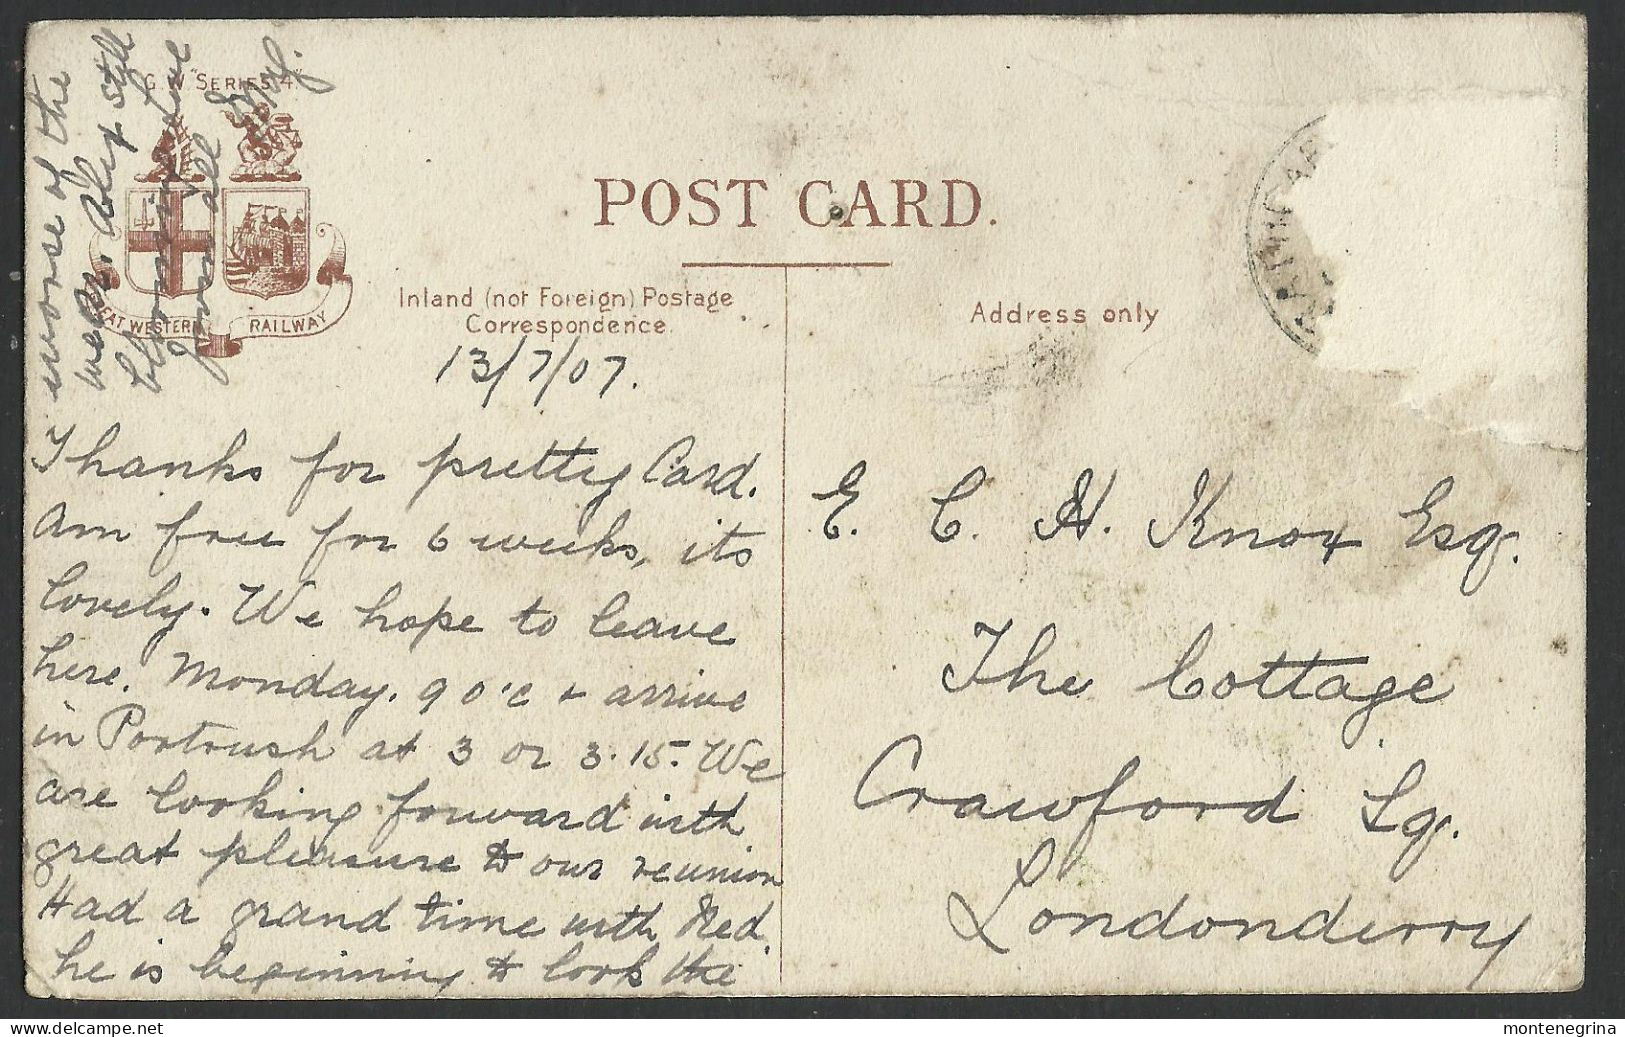 G.W. "SERIES 4"
GREAT WESTERN RAILWAY
POST CARD.
Inland (not Foreign) Postage
Correspondence.
Address only
13/7/07.
Thanks for pretty Card.
Am free for 6 weeks, its
lovely. We hope to leave
here. Monday. 9 o'c & arrive
in Portrush at 3 or 3.15. We
are looking forward with
great pleasure to our reunion
Had a grand time with Ned.
he is beginning to look the
worse of the
wear. Roly still
blooming
yours all
E. C. H. Knox Esq.
The Cottage
Crawford Sq.
Londonderry
montenegrina